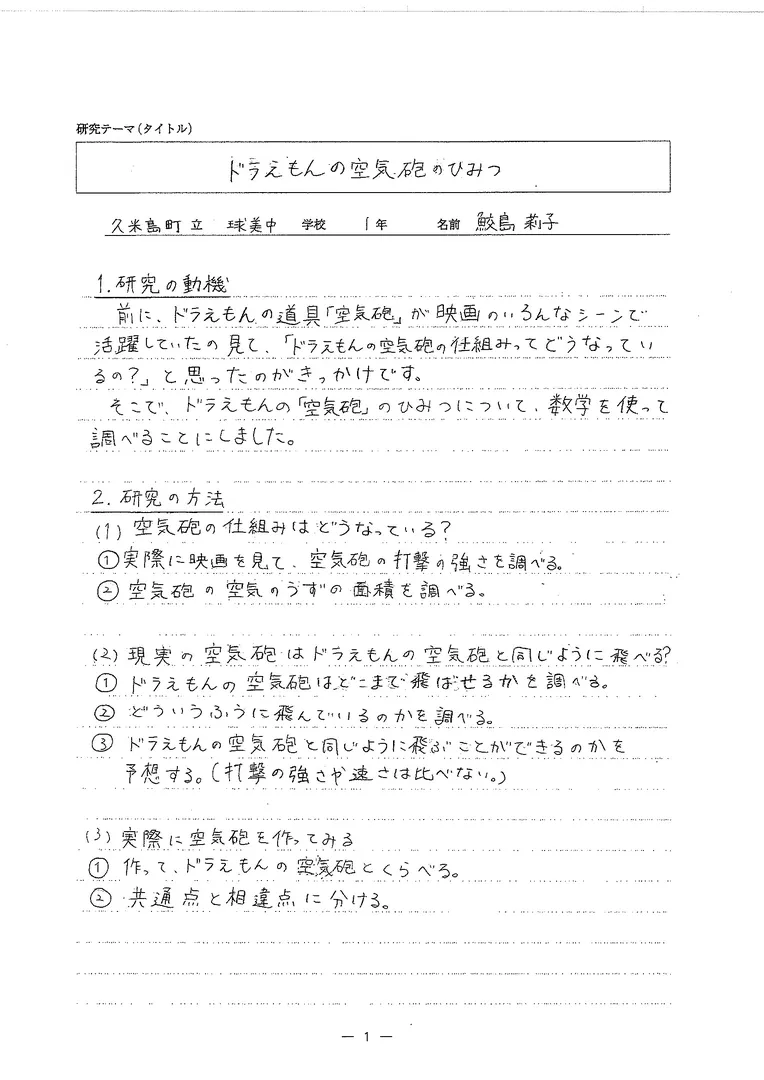 研究テーマ(タイトル)
ドラえもんの空気砲のひみつ
久米島町立 球美中 学校 1年 名前 鮫島 莉子
1.研究の動機
前に、ドラえもんの道具「空気砲」が映画のいろんなシーンで
活躍していたの見て、「ドラえもんの空気砲の仕組みってどうなってい
るの?」と思ったのがきっかけです。
そこで、ドラえもんの「空気砲」のひみつについて、数学を使って
調べることにしました。
2.研究の方法
(1)空気砲の仕組みはどうなっている?
①実際に映画を見て、空気砲の打撃の強さを調べる。
②空気砲の空気のうずの面積を調べる。
(2)現実の空気砲はドラえもんの空気砲と同じように飛べる?
①ドラえもんの空気砲はどこまで飛ばせるかを調べる。
②どういうふうに飛んでいるのかを調べる。
③ドラえもんの空気砲と同じように飛ぶことができるのかを
予想する。(打撃の強さや速さは比べない。)
(3)実際に空気砲を作ってみる
①作って、ドラえもんの空気砲とくらべる。
②共通点と相違点に分ける。
― 1 ―